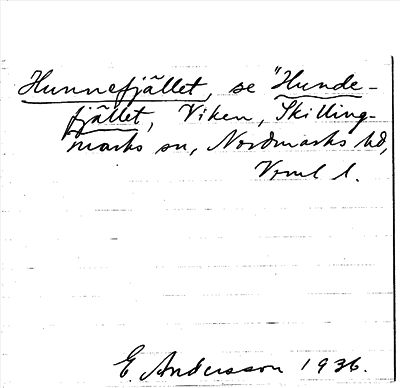 Hunnefjället, se "Hunde-
fjället, Viken, Skilling-
marks sn, Nordmarks hd,
Vrml l.
E. Andersson 1936.